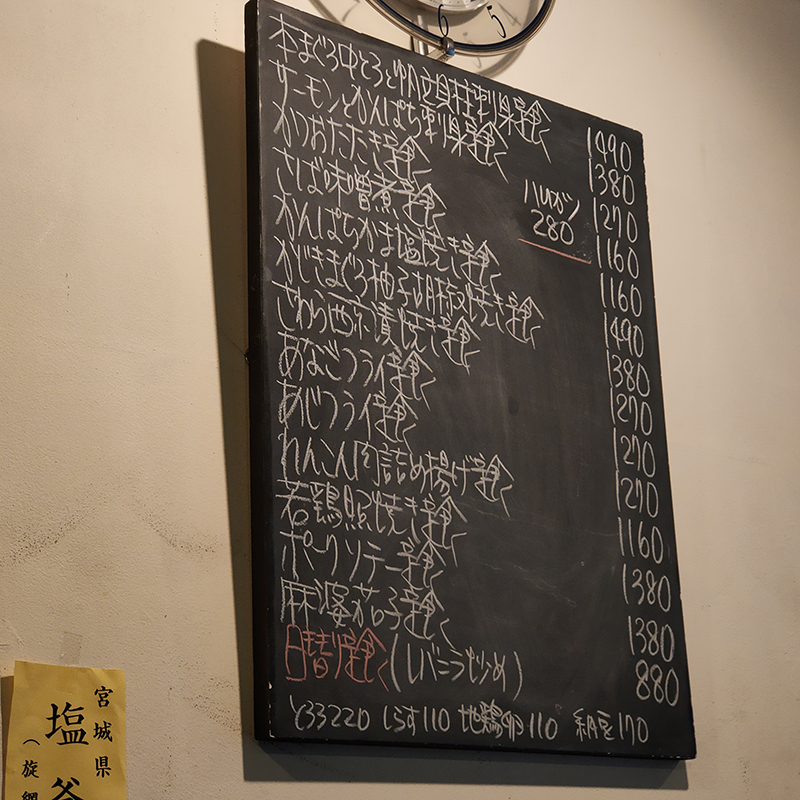 6 5
本まぐろ中とろと帆立貝柱刺身定食 1490
サーモンとかんぱち刺身定食 1380
かつおたたき定食 1270
さば味噌煮定食 1160
ハムカツ
280
かんぱちかま塩焼き定食 1160
かじきまぐろ柚子胡椒焼き定食 1490
さわら西京漬焼き定食 1380
あなごフライ定食 1270
あじフライ定食 1270
れんこん肉詰め揚げ定食 1270
若鶏照焼き定食 1160
ポークソテー定食 1380
麻婆茄子定食 1380
日替り定食(レバニラ炒め) 880
とろろ220 しらす110 地鶏卵110 納豆170
宮城県
塩釜
（旋網